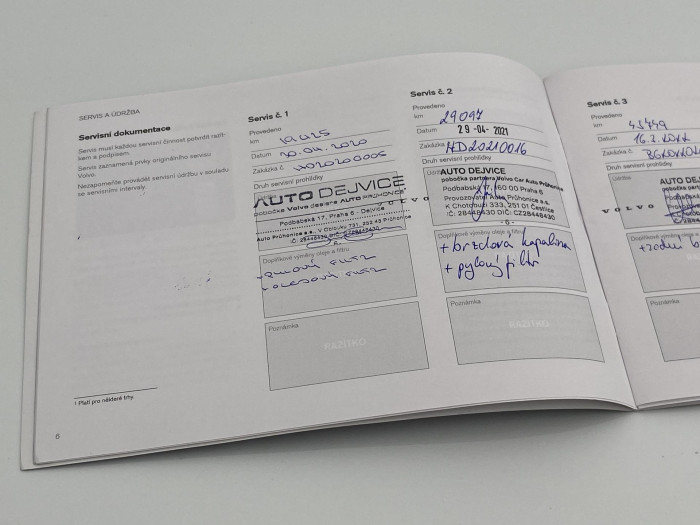 SERVIS A ÚDRŽBA
Servisní dokumentace
Servis musí každou servisní činnost potvrdit razít-
kem a podpisem.
Servis zaznamená prvky originálního servisu
Volvo.
Nezapomeňte provádět servisní údržbu v souladu
se servisními intervaly.
1 Platí pro některé trhy.
6
Servis č. 1
Provedeno
km 19425
Datum 20.04.2020
Zakázka č.
Druh servisní prohlídky
AUTO DEJVICE
pobočka Volvo dealera AUTO PRŮHONICE
Podbabská 17, Praha 6 - Dejvice
Auto Průhonice a.s., V Oblouku 731, 252 43 Průhonice
IČ: 28448430 DIČ: CZ28448430
- 6 -
Doplňkové výměny oleje a filtru
Poznámka
RAZÍTKO
Servis č. 2
Provedeno
km 29097
Datum 29 -04- 2021
Zakázka č. AD20210016
Druh servisní prohlídky
AUTO DEJVICE
pobočka partnera Volvo Car Auto Průhonice
Podbabská 17, 160 00 Praha 6
Provozovatel Auto Průhonice a.s.
K Chotobuzi 333, 251 01 Čestlice
IČ: 28448430 DIČ: CZ28448430
- 6 -
VOLVO
Doplňkové výměny oleje a filtru
+ brzdová kapalina
+ pylový filtr
Poznámka
RAZÍTKO
Servis č. 3
Provedeno
km
Datum
Zakázka č.
Druh servisní prohlídky
Údržba
AUTO
VOLVO
Doplňkové výměny
Poznámka